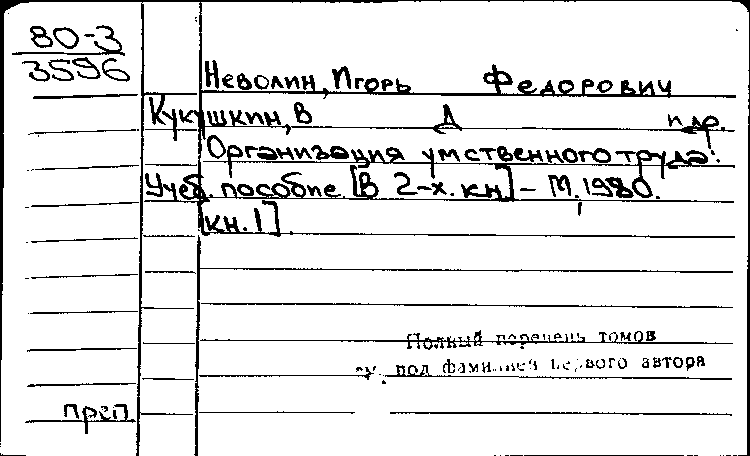 80-3
3596
Неволин, Игорь Федорович
Кукушкин, В Д и др.
Организация умственного труда:
Учеб. пособие [В 2-х. кн] - М, 1980.
[кн. 1].
Полный перечень томов
см. под фамилией первого автора
преп